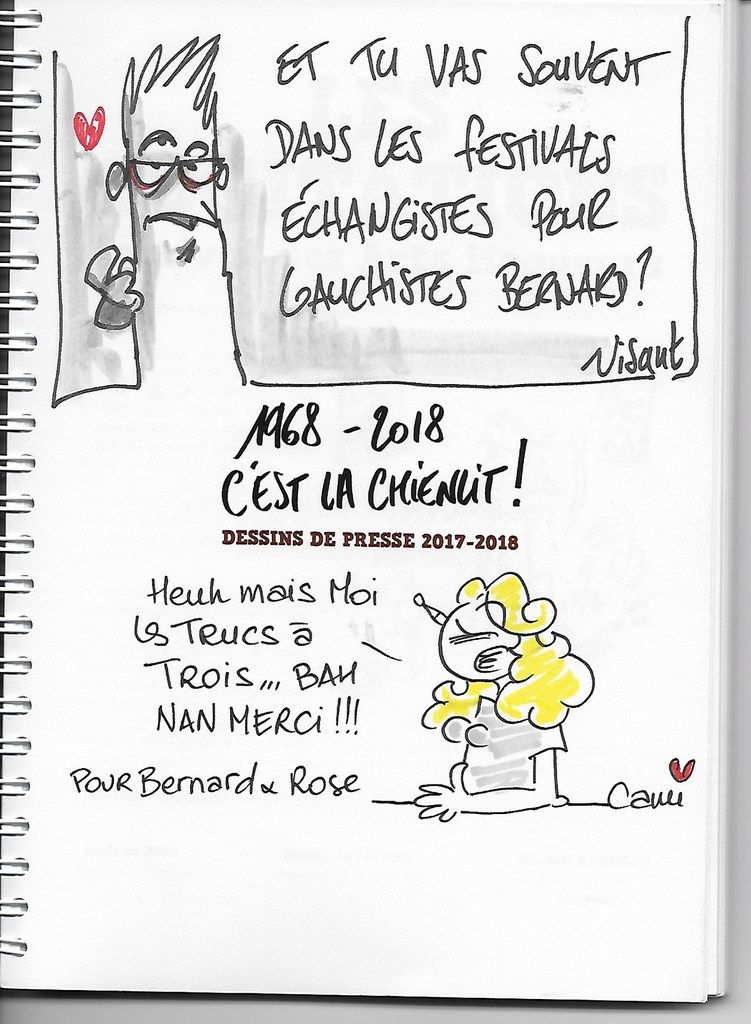 ET TU VAS SOUVENT
DANS LES FESTIVALS
ÉCHANGISTES POUR
GAUCHISTES BERNARD?
Visant
1968 - 2018
C'EST LA CHIENLIT!
DESSINS DE PRESSE 2017-2018
Heuh mais Moi
les TRUCS à
TROIS... BAH
NAN MERCI !!!
POUR Bernard & Rose
Cami